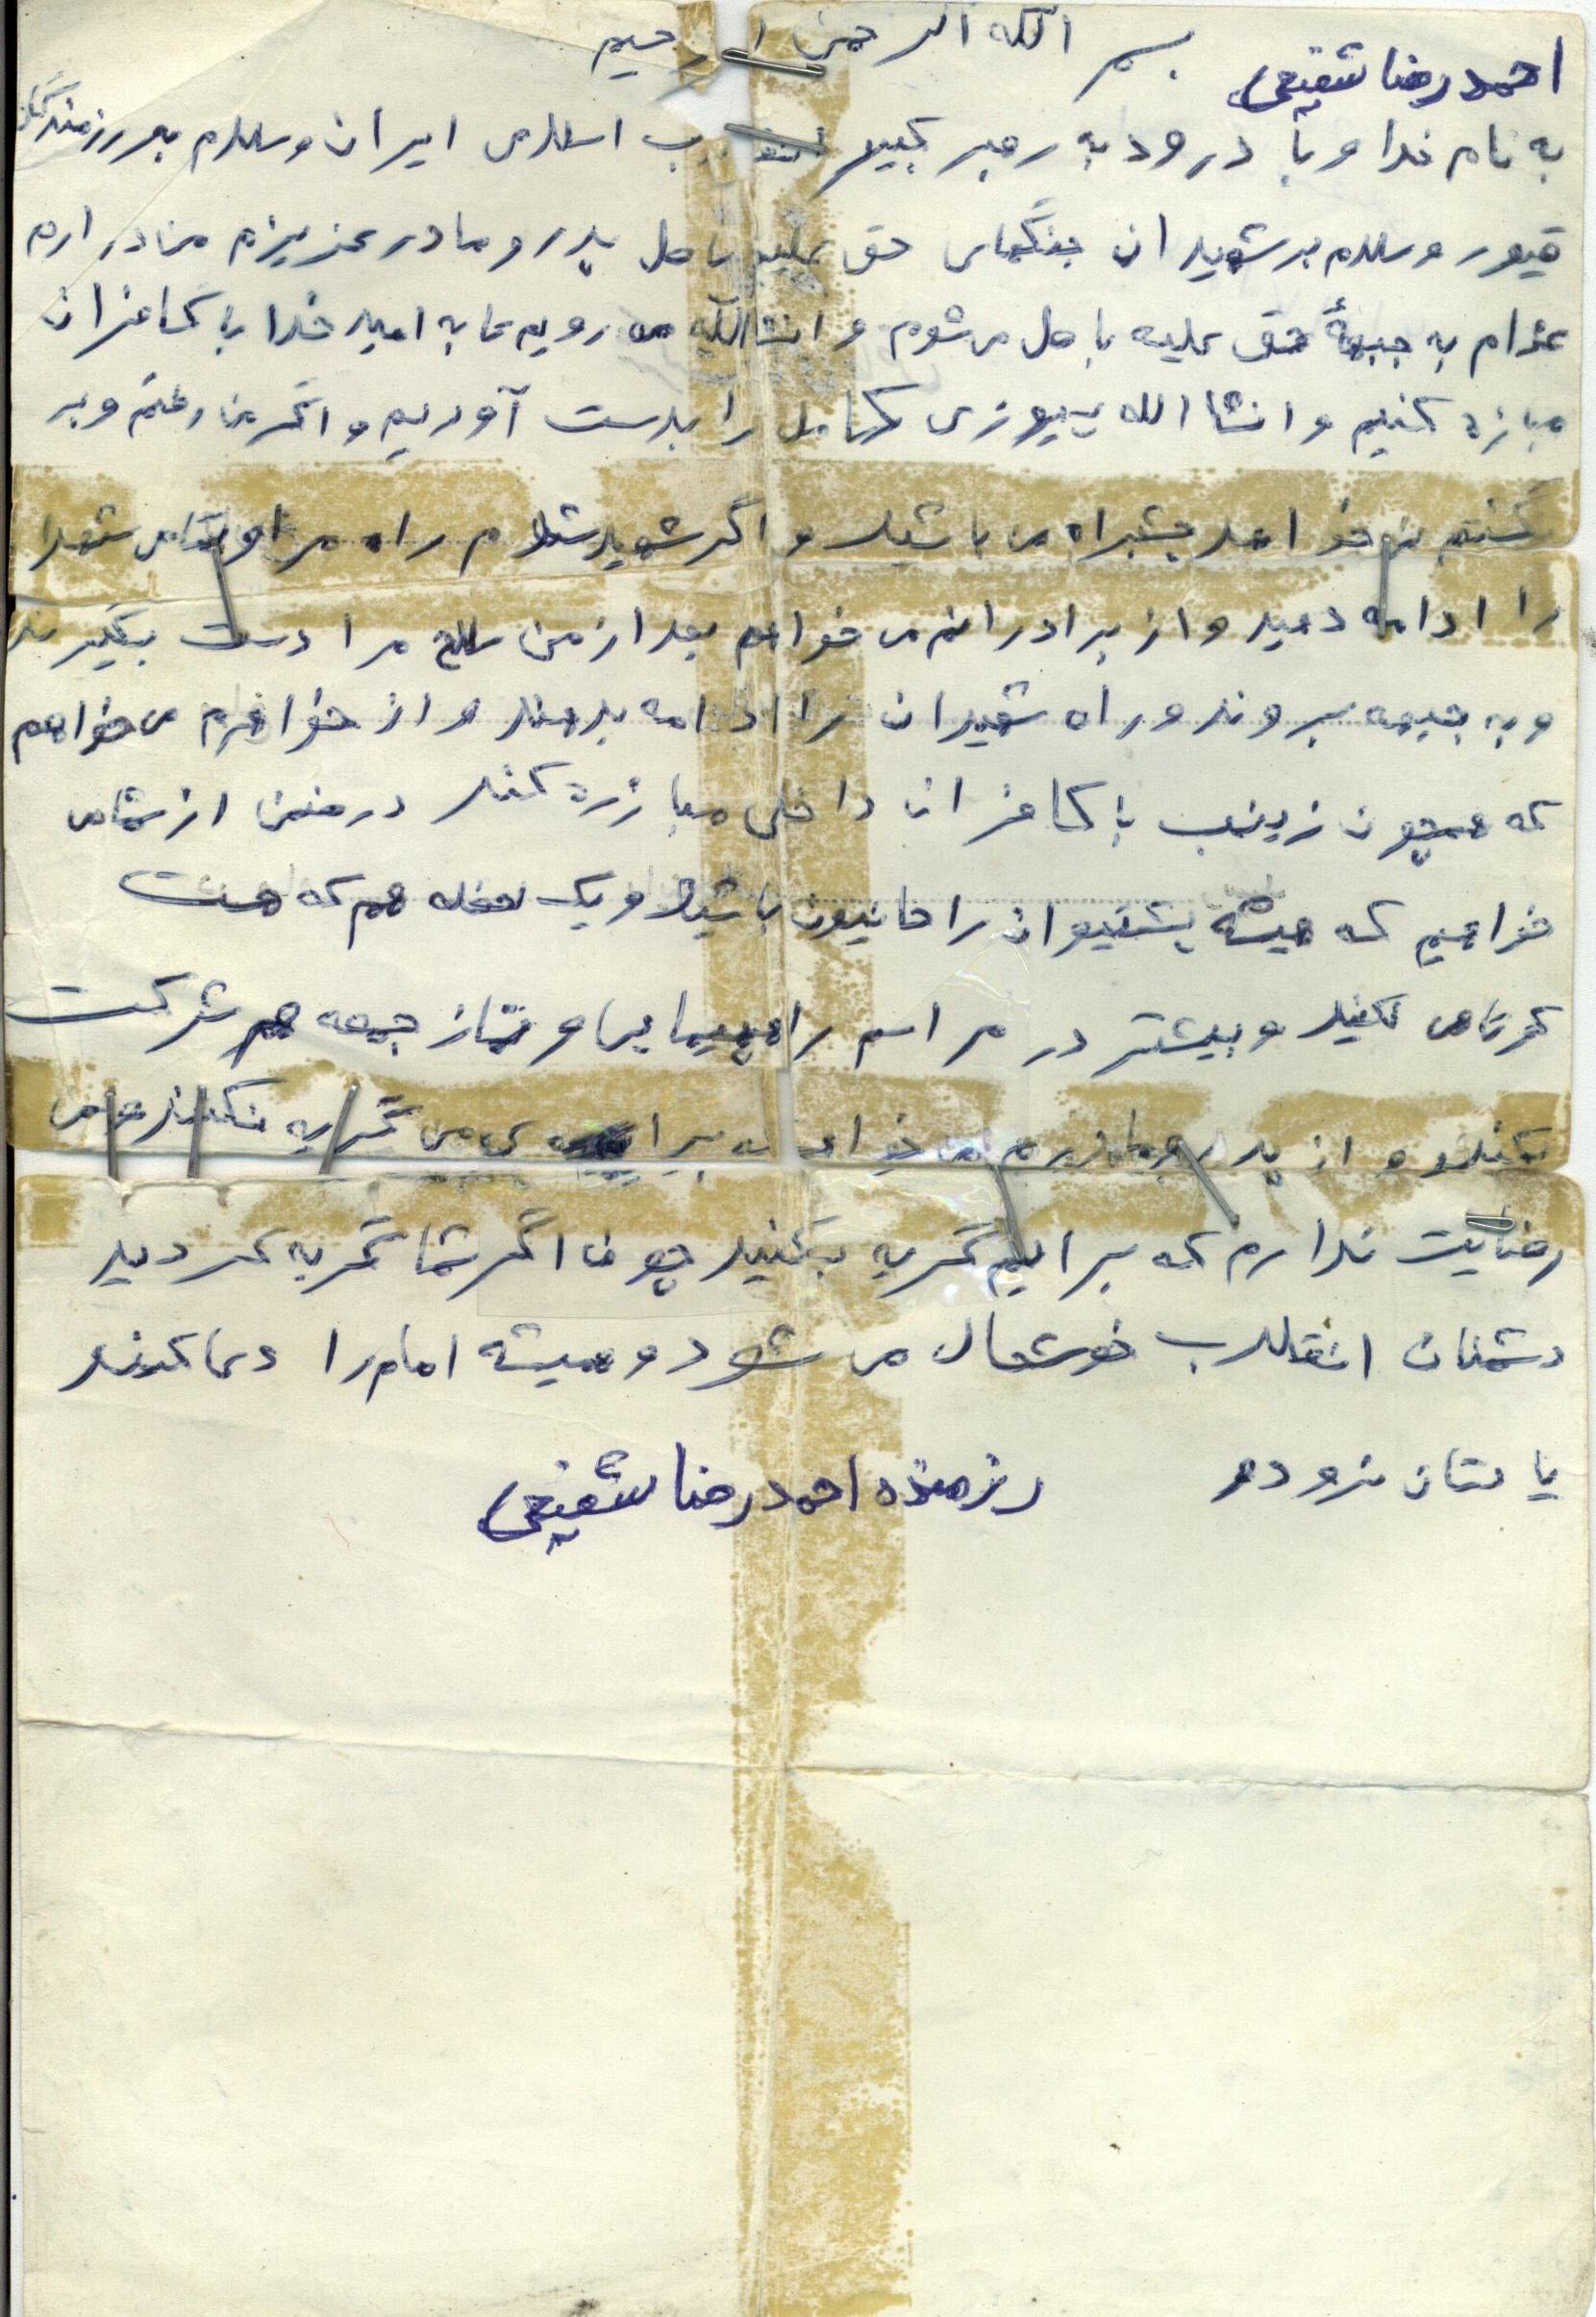 بسم الله الرحمن الرحیم
احمدرضا شفیعی
به نام خدا و با درود به رهبر کبیر انقلاب اسلامی ایران و سلام بر رزمندگان
قیور و سلام بر شهیدان جنگهای حق علیه باطل پدر و مادر عزیزم من دارم
عزام به جبههٔ حق علیه باطل می شوم و انشاالله می رویم تا به امید خدا با کافران
مبارزه کنیم و انشا الله پیروزی کامل را بدست آوریم و اگر من رفتم و بر
گشتم نمی خواهد چشبراه می باشید و اگر شهید شدم راه مرا و تمامی شهدا
را ادامه دهید و از برادرانم می خواهم بعد از من سلاح مرا دست بگیرند
و به جبهه بروند و راه شهیدان را ادامه بدهند و از خواهرم می خواهم
که همچون زینب با کافران داخلی مبارزه کند در ضمن از شما می
خواهیم که همیشه پشتیوان راحانیون باشید و یک لحظه هم که هست
کوتاهی نکنید و بیشتر در مراسم راهپیمایی و نماز جمعه هم شرکت
کنند و از پدر و مادرم می خواهم که برای من گریه نکنند من
رضایت ندارم که برایم گریه بکنید چون اگر شما گریه کردید
دشمنان انقلاب خوشحال می شود و همیشه امام را دعا کنید
یا دتان نرود
رزمنده احمدرضا شفیعی